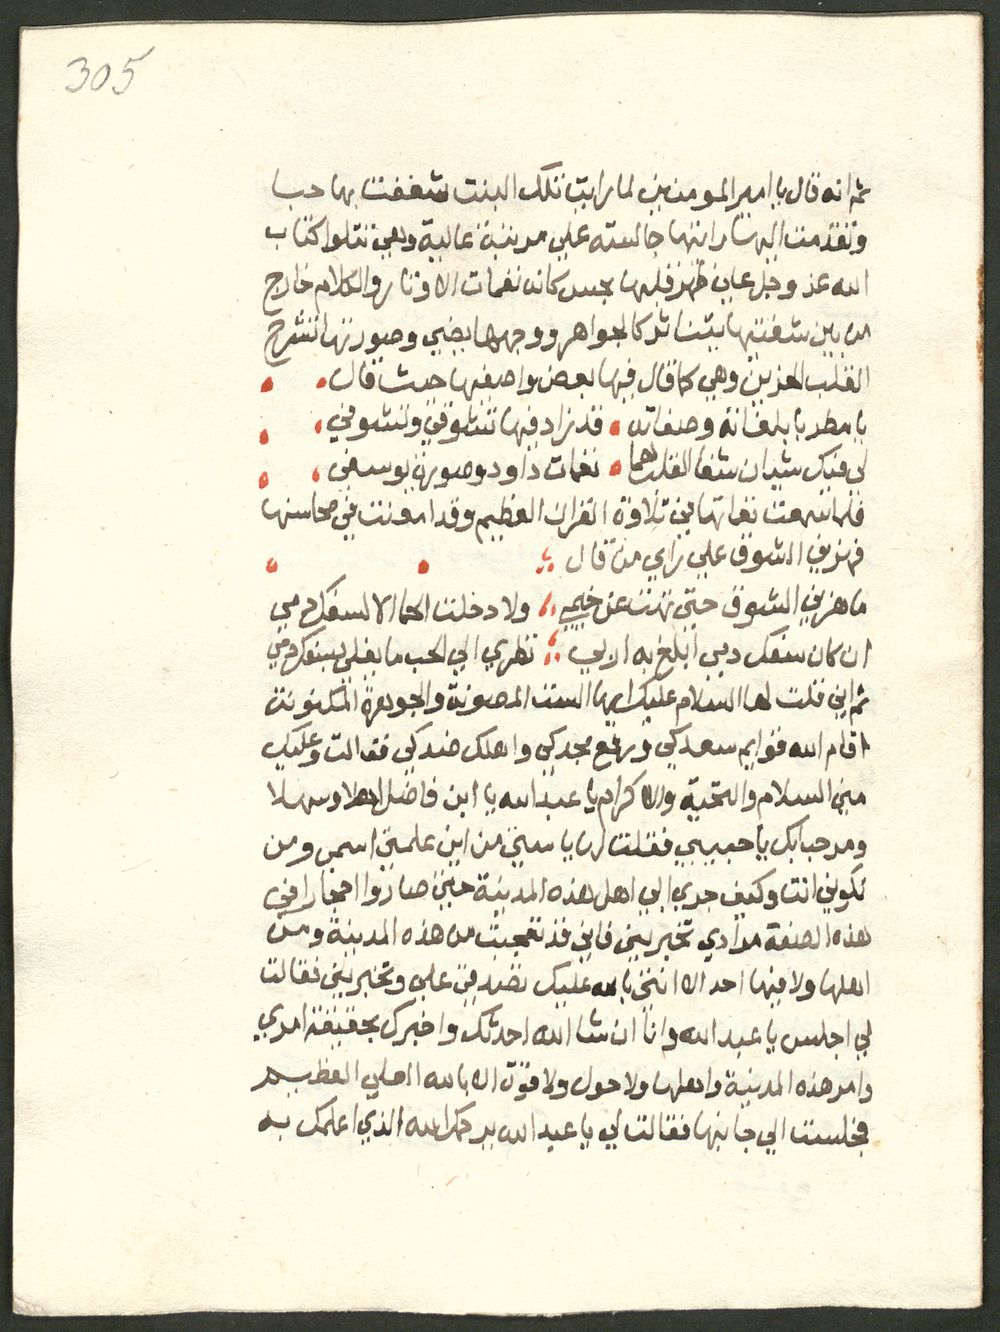 305
ثم انه قال يا امير المومنين لما رايت تلك البنت شغفت بها حبا
وتقدمت اليها رايتها جالسته علي مرتبة عالية وهي تتلوا كتاب
الله عز وجل عاين ظهر قلبها بحس كانه نغمات الاوتار والكلام خارج
من بين شفتيها يتناثر كالجواهر ووجهها يضي وصورتها تشرح
القلب الحزين وهي كما قال فيها بعض واصفيها حيث قال
يا مطربا بلغاته وصفاته قد زاد فيها تشوقي ولشوقي
لي فيك شيان شفا القلب هما نغمات داود وصورة يوسفي
فلما سمعت نغماتها في تلاوة القران العظيم وقد امعنت في محاسنها
فهزني الشوق علي راي من قال
ما هزني الشوق حتي تهت عن خيمي ولا دخلت الحما الا لسفك دمي
ان كان سفك دمي ابلغ به اربي نظري الي الحب ما يغلي بسفك دمي
ثم اني قلت لها السلام عليك ايها الست المصونة والجوهرة المكنونة
اقام الله قوايم سعدكي ورفع مجدكي واهلك ضدكي فقالت وعليك
مني السلام والتحية والاكرام يا عبد الله يا ابن فاضل اهلا وسهلا
ومرحبا بك يا حبيبي فقلت لها يا ستي من اين علمتي اسمي ومن
تكوني انت وكيف جري الي اهل هذه المدينة حتي صاروا احجارا في
هذه الصفة مرادي تخبريني فاني قد تعجبت من هذه المدينة ومن
اهلها ولا فيها احد الا انتي بالله عليك تصدقي علي وتخبريني فقالت
لي اجلس يا عبد الله وانا ان شا الله احدثك واخبرك بحقيقة امري
وامر هذه المدينة واهلها ولا حول ولا قوة الا بالله العلي العظيم
فجلست الي جانبها فقالت لي يا عبد الله يرحمك الله الذي اعلمك به